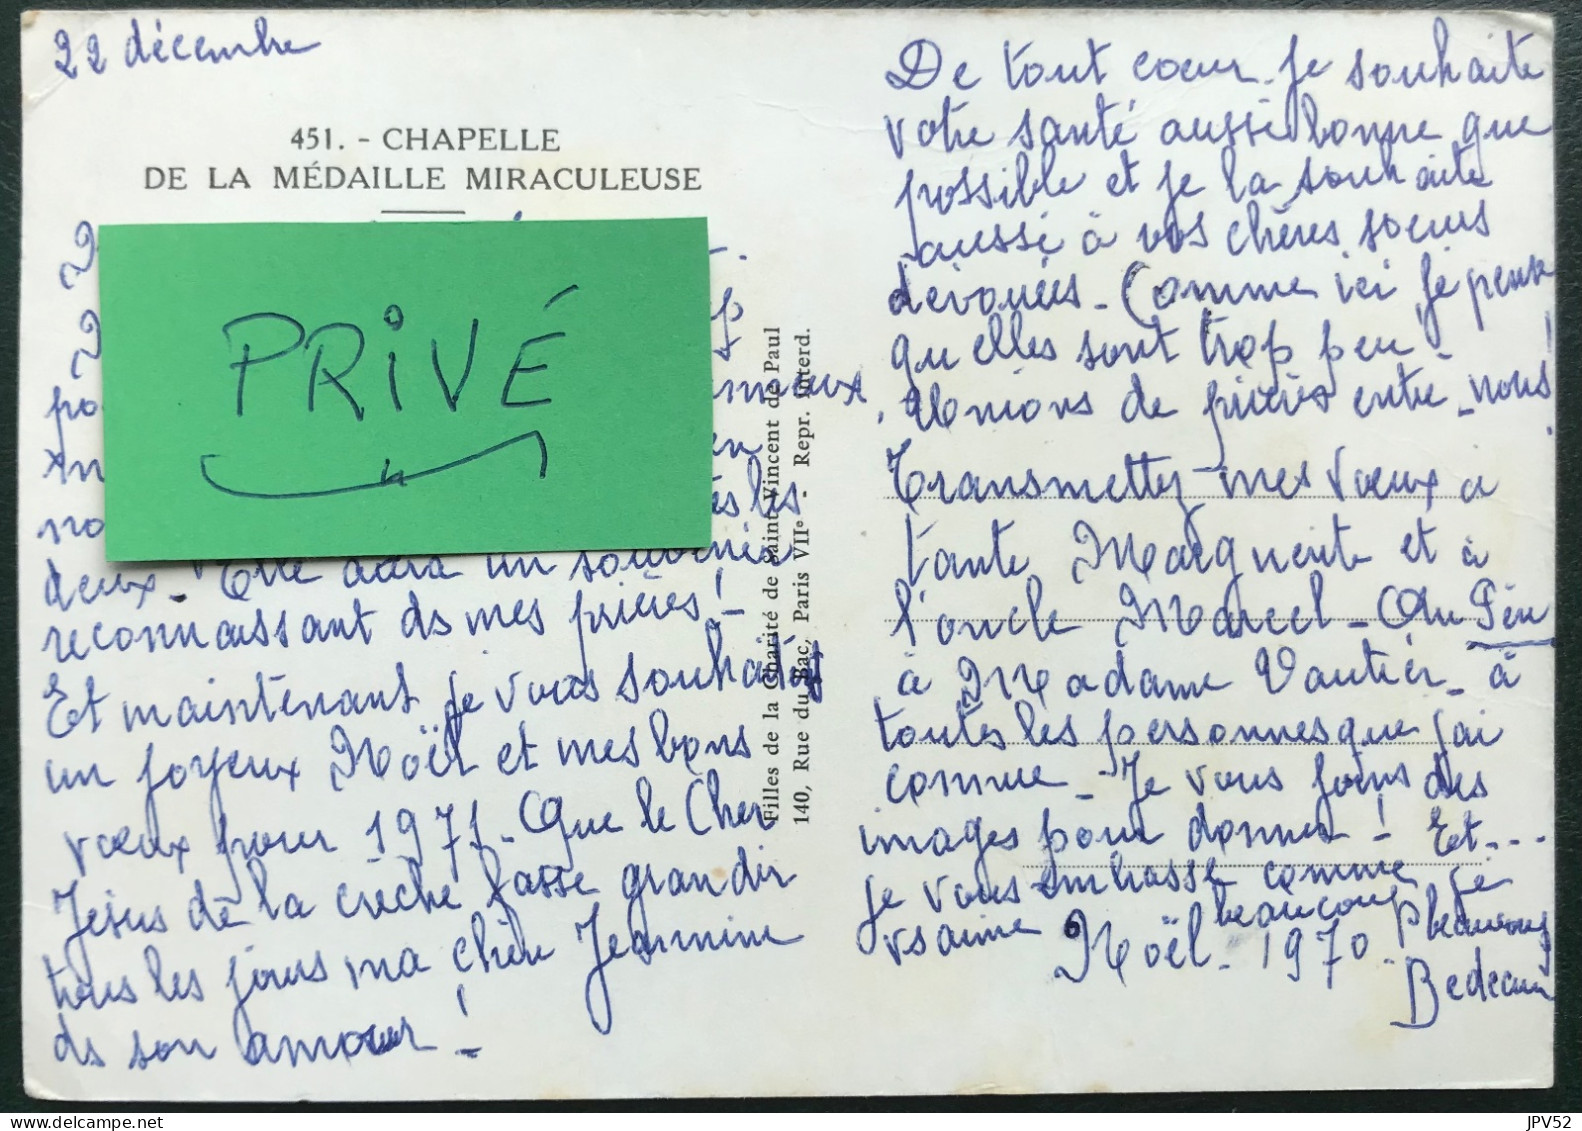 22 décembre
451. - CHAPELLE
DE LA MÉDAILLE MIRACULEUSE
PRIVÉ
deux - Elle aura un souvenir
reconnaissant ds mes prières !
Et maintenant je vous souhaite
un joyeux Noël et mes bons
vœux pour 1971 - Que le Cher
Jésus de la crèche fasse grandir
tous les jours ma chère Jeannine
ds son amour !
Filles de la Charité de Saint Vincent de Paul
140, Rue du Bac, Paris VIIe - Repr. Interd.
De tout coeur je souhaite
votre santé aussi bonne que
possible et je la souhaite
aussi à vos chères soeurs
dévouées - Comme ici je pense
qu'elles sont trop peu !
Unions de prières entre nous !
Transmettez mes vœux à
tante Marguerite et à
l'oncle Marcel - Au Père
à Madame Vautier - à
toutes les personnes que j'ai
connue - Je vous joins des
images pour donner ! Et ...
je vous embrasse comme je
vs aime beaucoup beaucoup
Noël - 1970